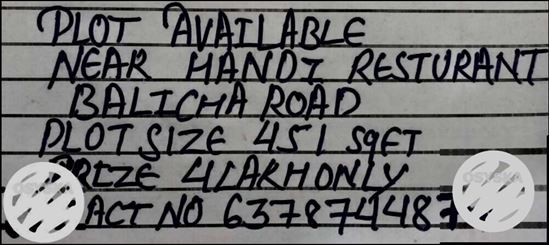 PLOT AVAILABLE
NEAR HANDI RESTURANT
BALICHA ROAD
PLOT SIZE 451 SQFT
PRIZE 4LAKHONLY
ACT NO 6378744487
OSYSKA